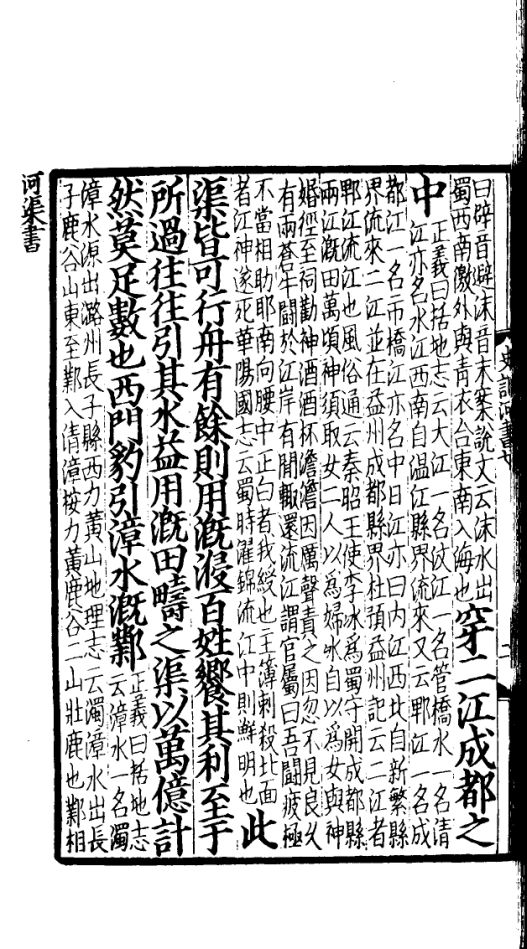 曰辟音避沫音末案說文云沫水出
蜀西南徼外與青衣合東南入海也
穿二江成都之
中
正義曰括地志云大江一名汶江一名管橋水一名清
江亦名水江西南自温江縣界流來又云郫江一名成
都江一名市橋江亦名中日江亦曰内江西北自新繁縣
界流來二江並在益州成都縣界杜預益州記云二江者
郫江流江也風俗通云秦昭王使李冰爲蜀守開成都縣
兩江溉田萬頃神須取女二人以爲婦冰自以爲女與神
婚徑至祠勸神酒酒杯澹澹因厲聲責之因忽不見良久
有兩蒼牛鬭於江岸有閒輙還流江謂官屬曰吾鬭疲極
不當相助耶南向腰中正白者我綬也主簿刺殺北面
者江神遂死華陽國志云蜀時濯錦流江中則鮮明也
此
渠皆可行舟有餘則用溉浸百姓饗其利至于
所過往往引其水益用溉田疇之渠以萬億計
然莫足數也西門豹引漳水溉鄴
正義曰括地志
云漳水一名濁
漳水源出潞州長子縣西力黃山地理志云濁漳水出長
子鹿谷山東至鄴入清漳按力黃鹿谷二山壯鹿也鄴相
河渠書